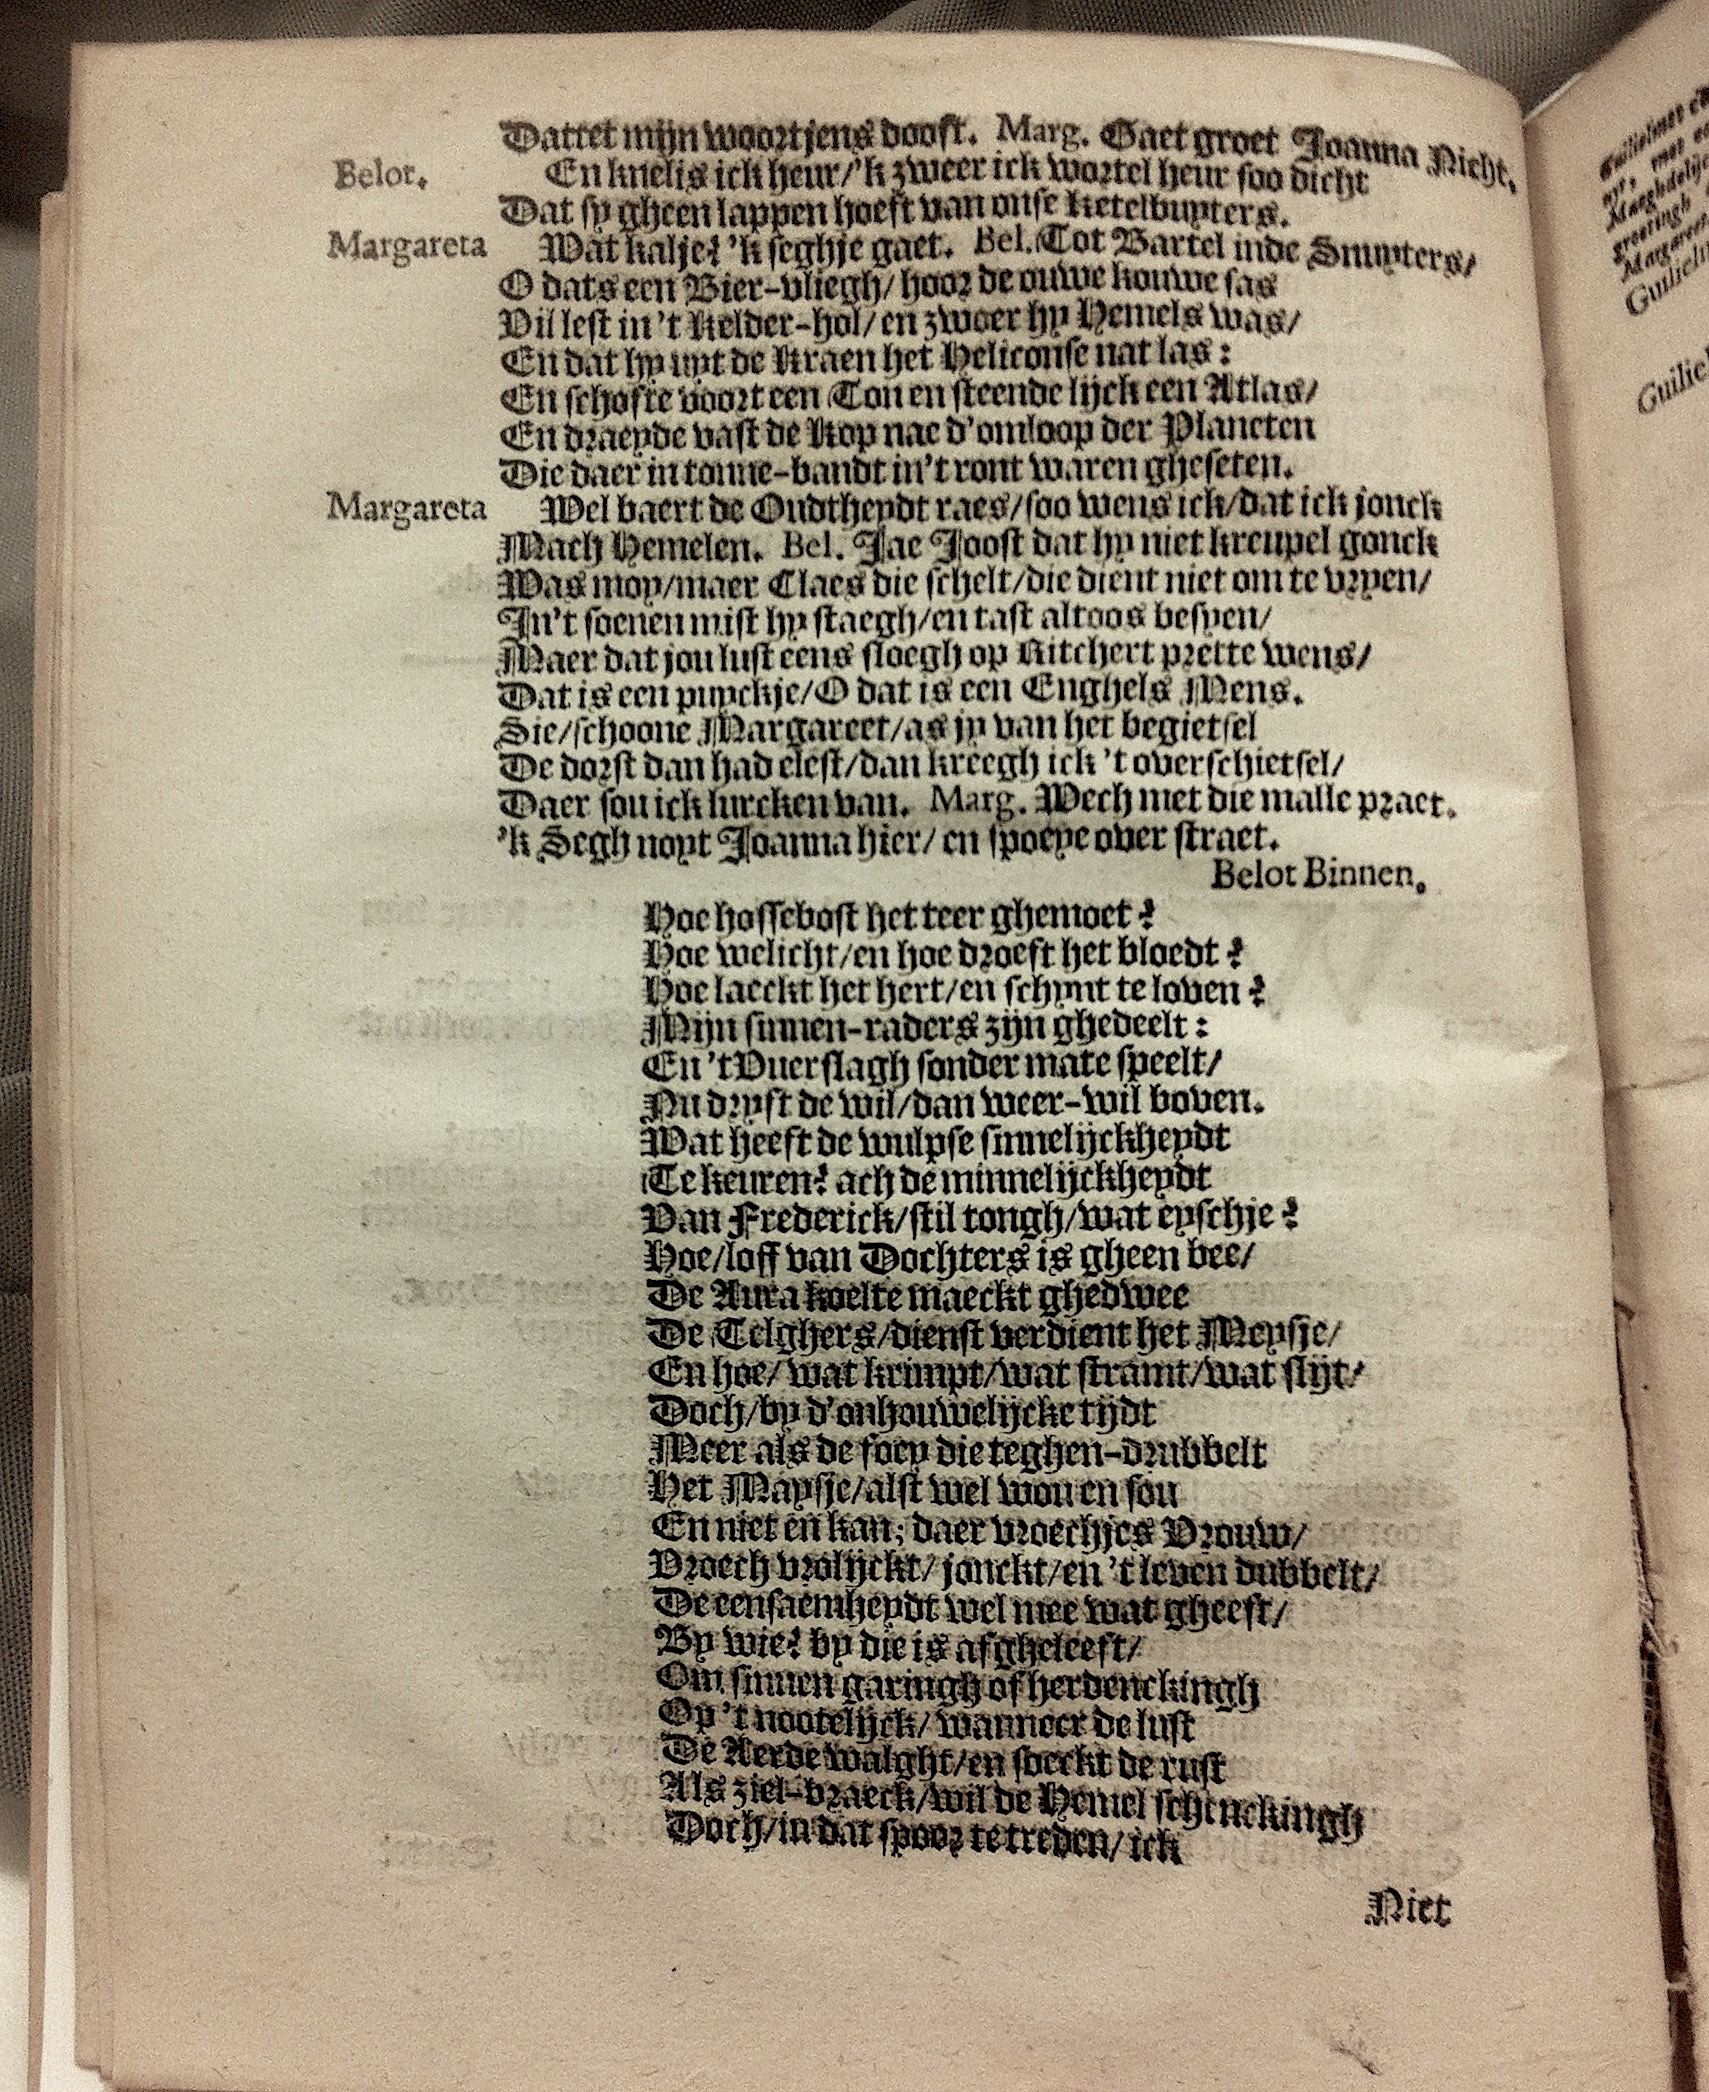 Dattet mijn woortjens dooft. Marg. Gaet groet Joanna Nicht.
Belot. En knelis ick heur/'k zweer ick wortel heur soo dicht
Dat sy gheen lappen hoeft van onse Ketelbuyters.
Margareta Wat kalje? 'k seghje gaet. Bel. Tot Bartel inde Snuyters/
O dats een Bier-vliegh/ hoor de ouwe kouwe sas
Vil lest in 't Kelder-hol/ en zwoer hy Hemels was/
En dat hy uyt de Kraen het Heliconse nat las:
En schofte voort een Ton en steende lijck een Atlas/
En draeyde vast de Kop nae d'omloop der Planeten
Die daer in tonne-bandt in't ront waren gheseten.
Margareta Wel baert de Oudtheydt raes/soo wens ick/dat ick jonck
Mach Hemelen. Bel. Jae Joost dat hy niet kreupel gonck
Was moy/maer Claes die schelt/die dient niet om te vryen/
In't soenen mist hy staegh/en tast altoos besyen/
Maer dat jou lust eens sloegh op Ritchert prette wens/
Dat is een puyckje/O dat is een Enghels Mens.
Sie/schoone Margareet/as jy van het begietsel
De dorst dan had elest/dan kreegh ick 't overschietsel/
Daer sou ick lurcken van. Marg. Wech met die malle praet.
'k Segh noyt Joanna hier/ en spoeye over straet.
Belot Binnen.
Hoe hossebost het teer ghemoet?
Hoe welicht/en hoe droeft het bloedt?
Hoe laeckt het hert/en schynt te loven?
Mijn sinnen-raders zijn ghedeelt:
En 't Vuerslagh sonder mate speelt/
Nu dryft de wil/dan weer-wil boven.
Wat heeft de wulpse sinnelijckheydt
Te keuren? ach de minnelijckheydt
Van Frederick/stil tongh/wat eyschje?
Hoe/loff van Dochters is gheen bee/
De Aura koelte maeckt ghedwee
De Telghers/dienst verdient het Meysje/
En hoe/ wat krimpt/wat stramt/wat slijt/
Doch/by d'onhouwelijcke tijdt
Meer als de foey die teghen-drubbelt
Het Maysje/alst wel wou en sou
En niet en kan; daer vroechjes Vrouw/
Vroech vrolijckt/ jonckt/en 't leven dubbelt/
De eensaemheydt wel mee wat gheeft/
By wie? by die is afgheleeft/
Om sinnen garingh of herdenckingh
Op 't nootelijck/ wanneer de lust
De Aerde walght/en soeckt de rust
Als ziel-braeck/wil de Hemel schenckingh
Doch/in dat spoor te treden/ ick
Niet